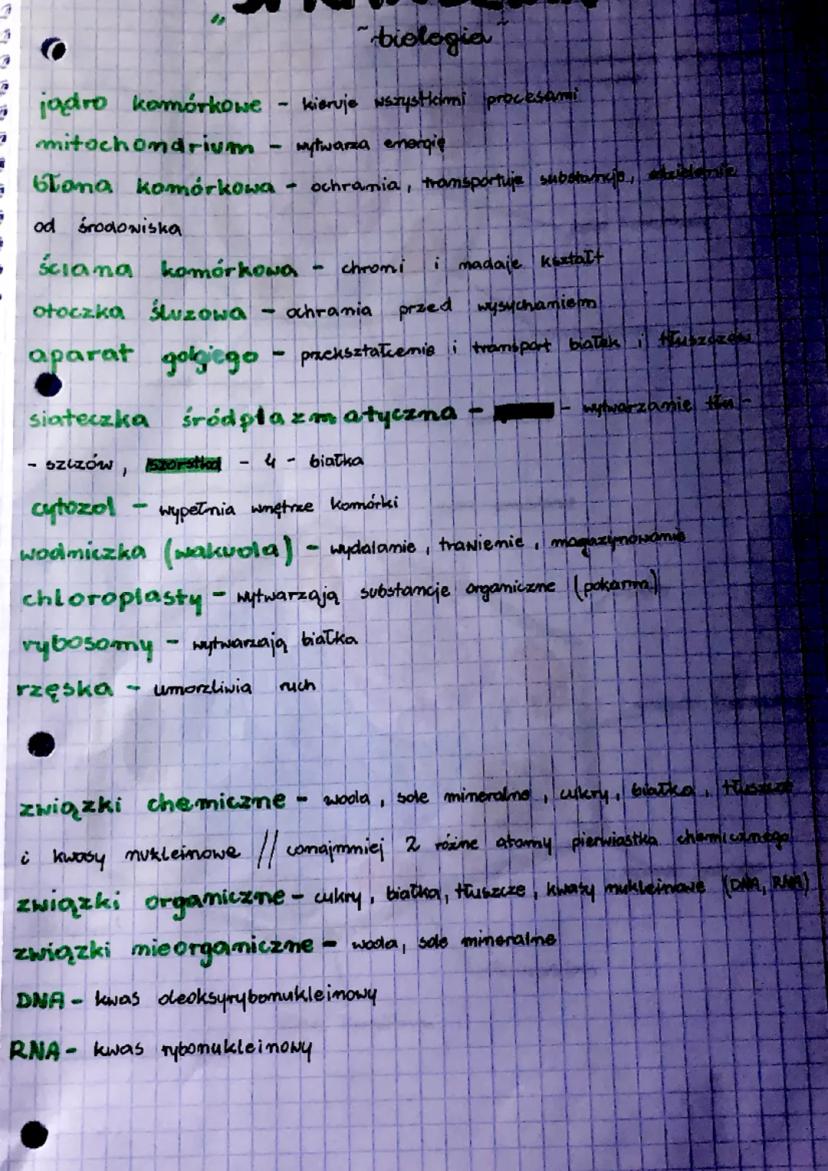 ~biologia~
jądro komórkowe - kieruje wszystkimi procesami
mitochondrium - wytwarza energię
błona komórkowa - ochrania, transportuje substancje, oddzielenie
od środowiska
ściana komórkowa - chroni i nadaje kształt
otoczka śluzowa - ochrania przed wysychaniem
aparat golgiego - przekształcenie i transport białek i tłuszczów
siateczka śródplazmatyczna - - wytwarzanie tłu-
- szczów, szorstka - 4 - białka
cytozol - wypełnia wnętrze komórki
wodniczka (wakuola) - wydalanie, trawienie, magazynowanie
chloroplasty - wytwarzają substancje organiczne (pokarm)
rybosomy - wytwarzają białka
rzęska - umorzliwia ruch
związki chemiczne - woda, sole mineralne, cukry, białka, tłuszcze
i kwasy nukleinowe // conajmniej 2 różne atomy pierwiastka chemicznego
związki organiczne - cukry, białka, tłuszcze, kwasy nukleinowe (DNA, RNA)
związki nieorganiczne - woda, sole mineralne
DNA - kwas deoksyrybonukleinowy
RNA - kwas rybonukleinowy